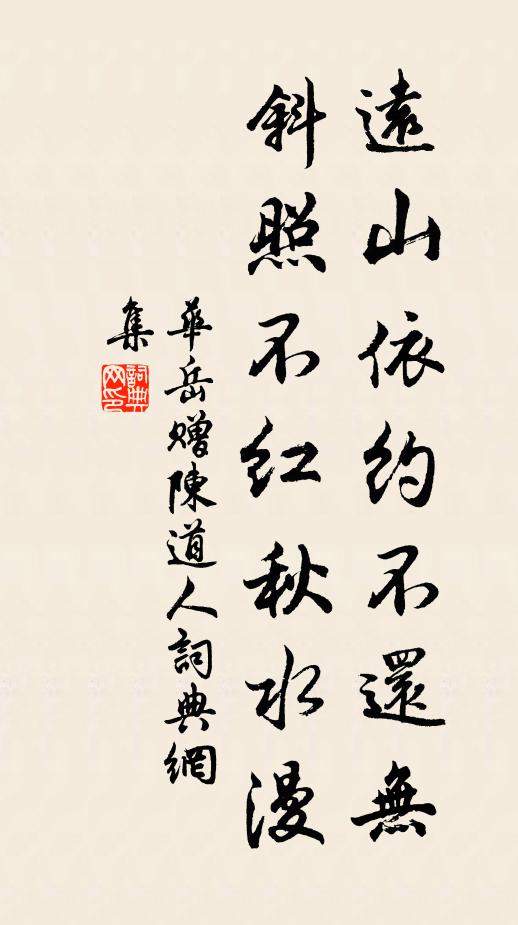 遠山依約不還無
斜照不红秋水漫
華岳贈陳道人詞典網
集
詞典
网印